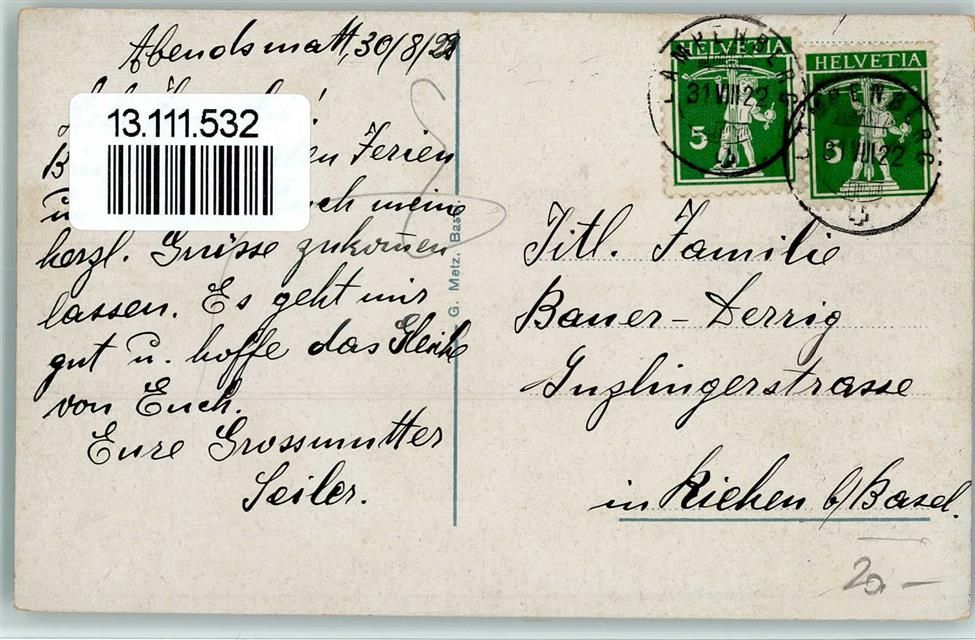 Abendsmatt, 30/8/22
13.111.532
Ferien
meine
herzl. Grüsse zukom̄en
lassen. Es geht mir
gut u. hoffe das Gleiche
von Euch.
Eure Grossmutter
Seiler.
G. Metz, Basel.
HELVETIA
5
HELVETIA
5
LAMPENBERG
31 VIII 22
LAMPENBERG
31 VIII 22
Titl. Familie
Bauer-Derrig
Inzlingerstrasse
in Riehen b/Basel.
20.-